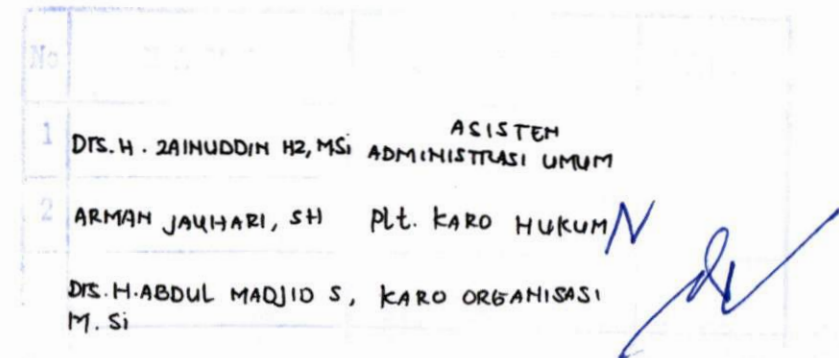 No
1 Drs. H. ZAINUDDIN HZ, MSi ASISTEN ADMINISTRASI UMUM
2 ARMAN JAUHARI, SH Plt. KARO HUKUM
Drs. H. ABDUL MADJID S, KARO ORGANISASI
M. Si